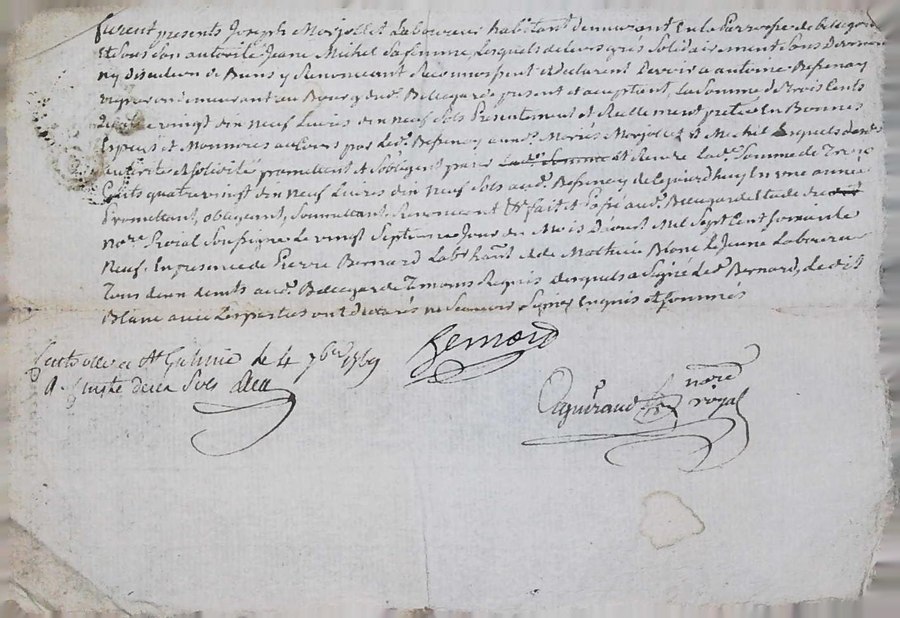 furent presents Joseph Morjollet Laboureur habitant demeurant en la Parroisse de Bellegarde
et sous son autorité Jeane Michel sa femme, lesquels de leurs grés solidairement sans division
ny discution de Biens y Renonceant Reconnoissent et declarent devoir a antoine Bessenay
vigneron demeurant au Bourg dud. Bellegarde present et acceptant, la somme de trois Cents
quatre vingt dix neuf Livres dix neuf sols Presentement et Reellement pretée En Bonnes
Especes et Monnoies au Cours par led. Bessenay aud. Mariés Morjollet et Michel Lesquels
solidité promettent et sobligent payer et Rendre lad. Somme de Trois
Cents quatre vingt dix neuf Livres dix neuf sols aud. Bessenay de Cejourdhuy En une année
Promettant, obligeant, Soumettant, Renonceant &c fait et Passé aud. Bellegarde Etude
no.re Roial Soussigné Le vingt Septieme Jour du Mois d'aoust Mil Sept Cent soixante
Neuf. En presence de Pierre Bernard Lab. hant. et de Mathieu Blanc le Jeune Laboureur
Tous deux demts aud. Bellegarde Temoins Requis desquels a Signé led. Bernard, Ledit
Blanc avec les parties ont declarés ne Scavoir Signer Enquis et sommés
Bernard
Controllé a St Galmier le 4 7bre 1769
R. sols
notre
royal